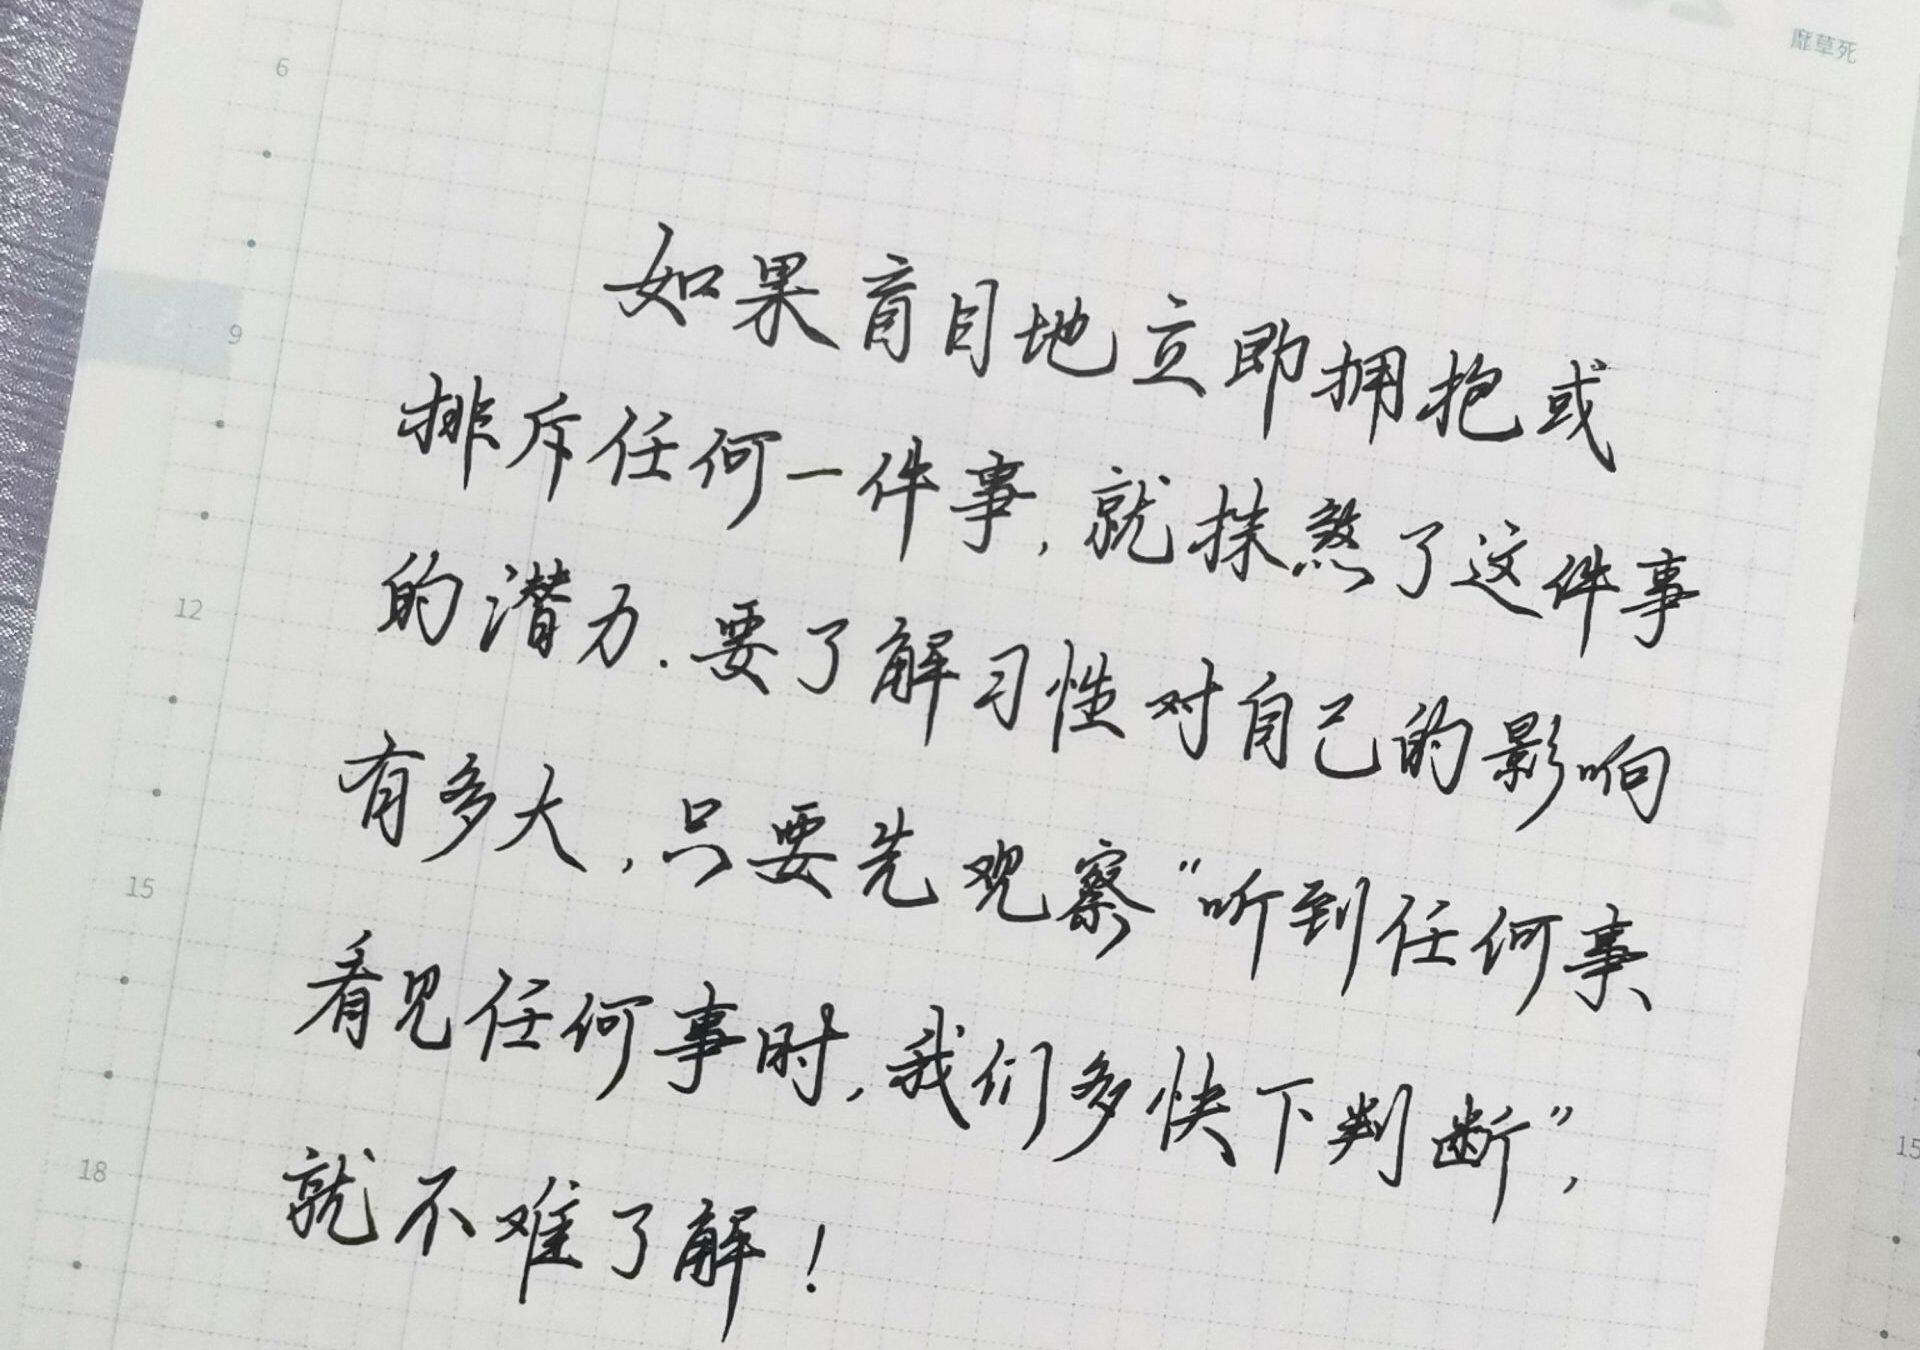 靡草死
6
9
12
15
18
如果盲目地立即拥抱或
排斥任何一件事,就抹煞了这件事
的潜力.要了解习性对自己的影响
有多大,只要先观察“听到任何事、
看见任何事时,我们多快下判断”,
就不难了解!
15